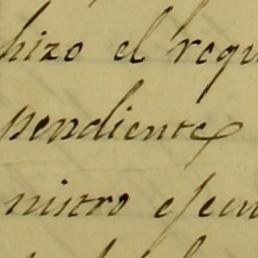 hizo el requ
pendiente
nistro ejecu